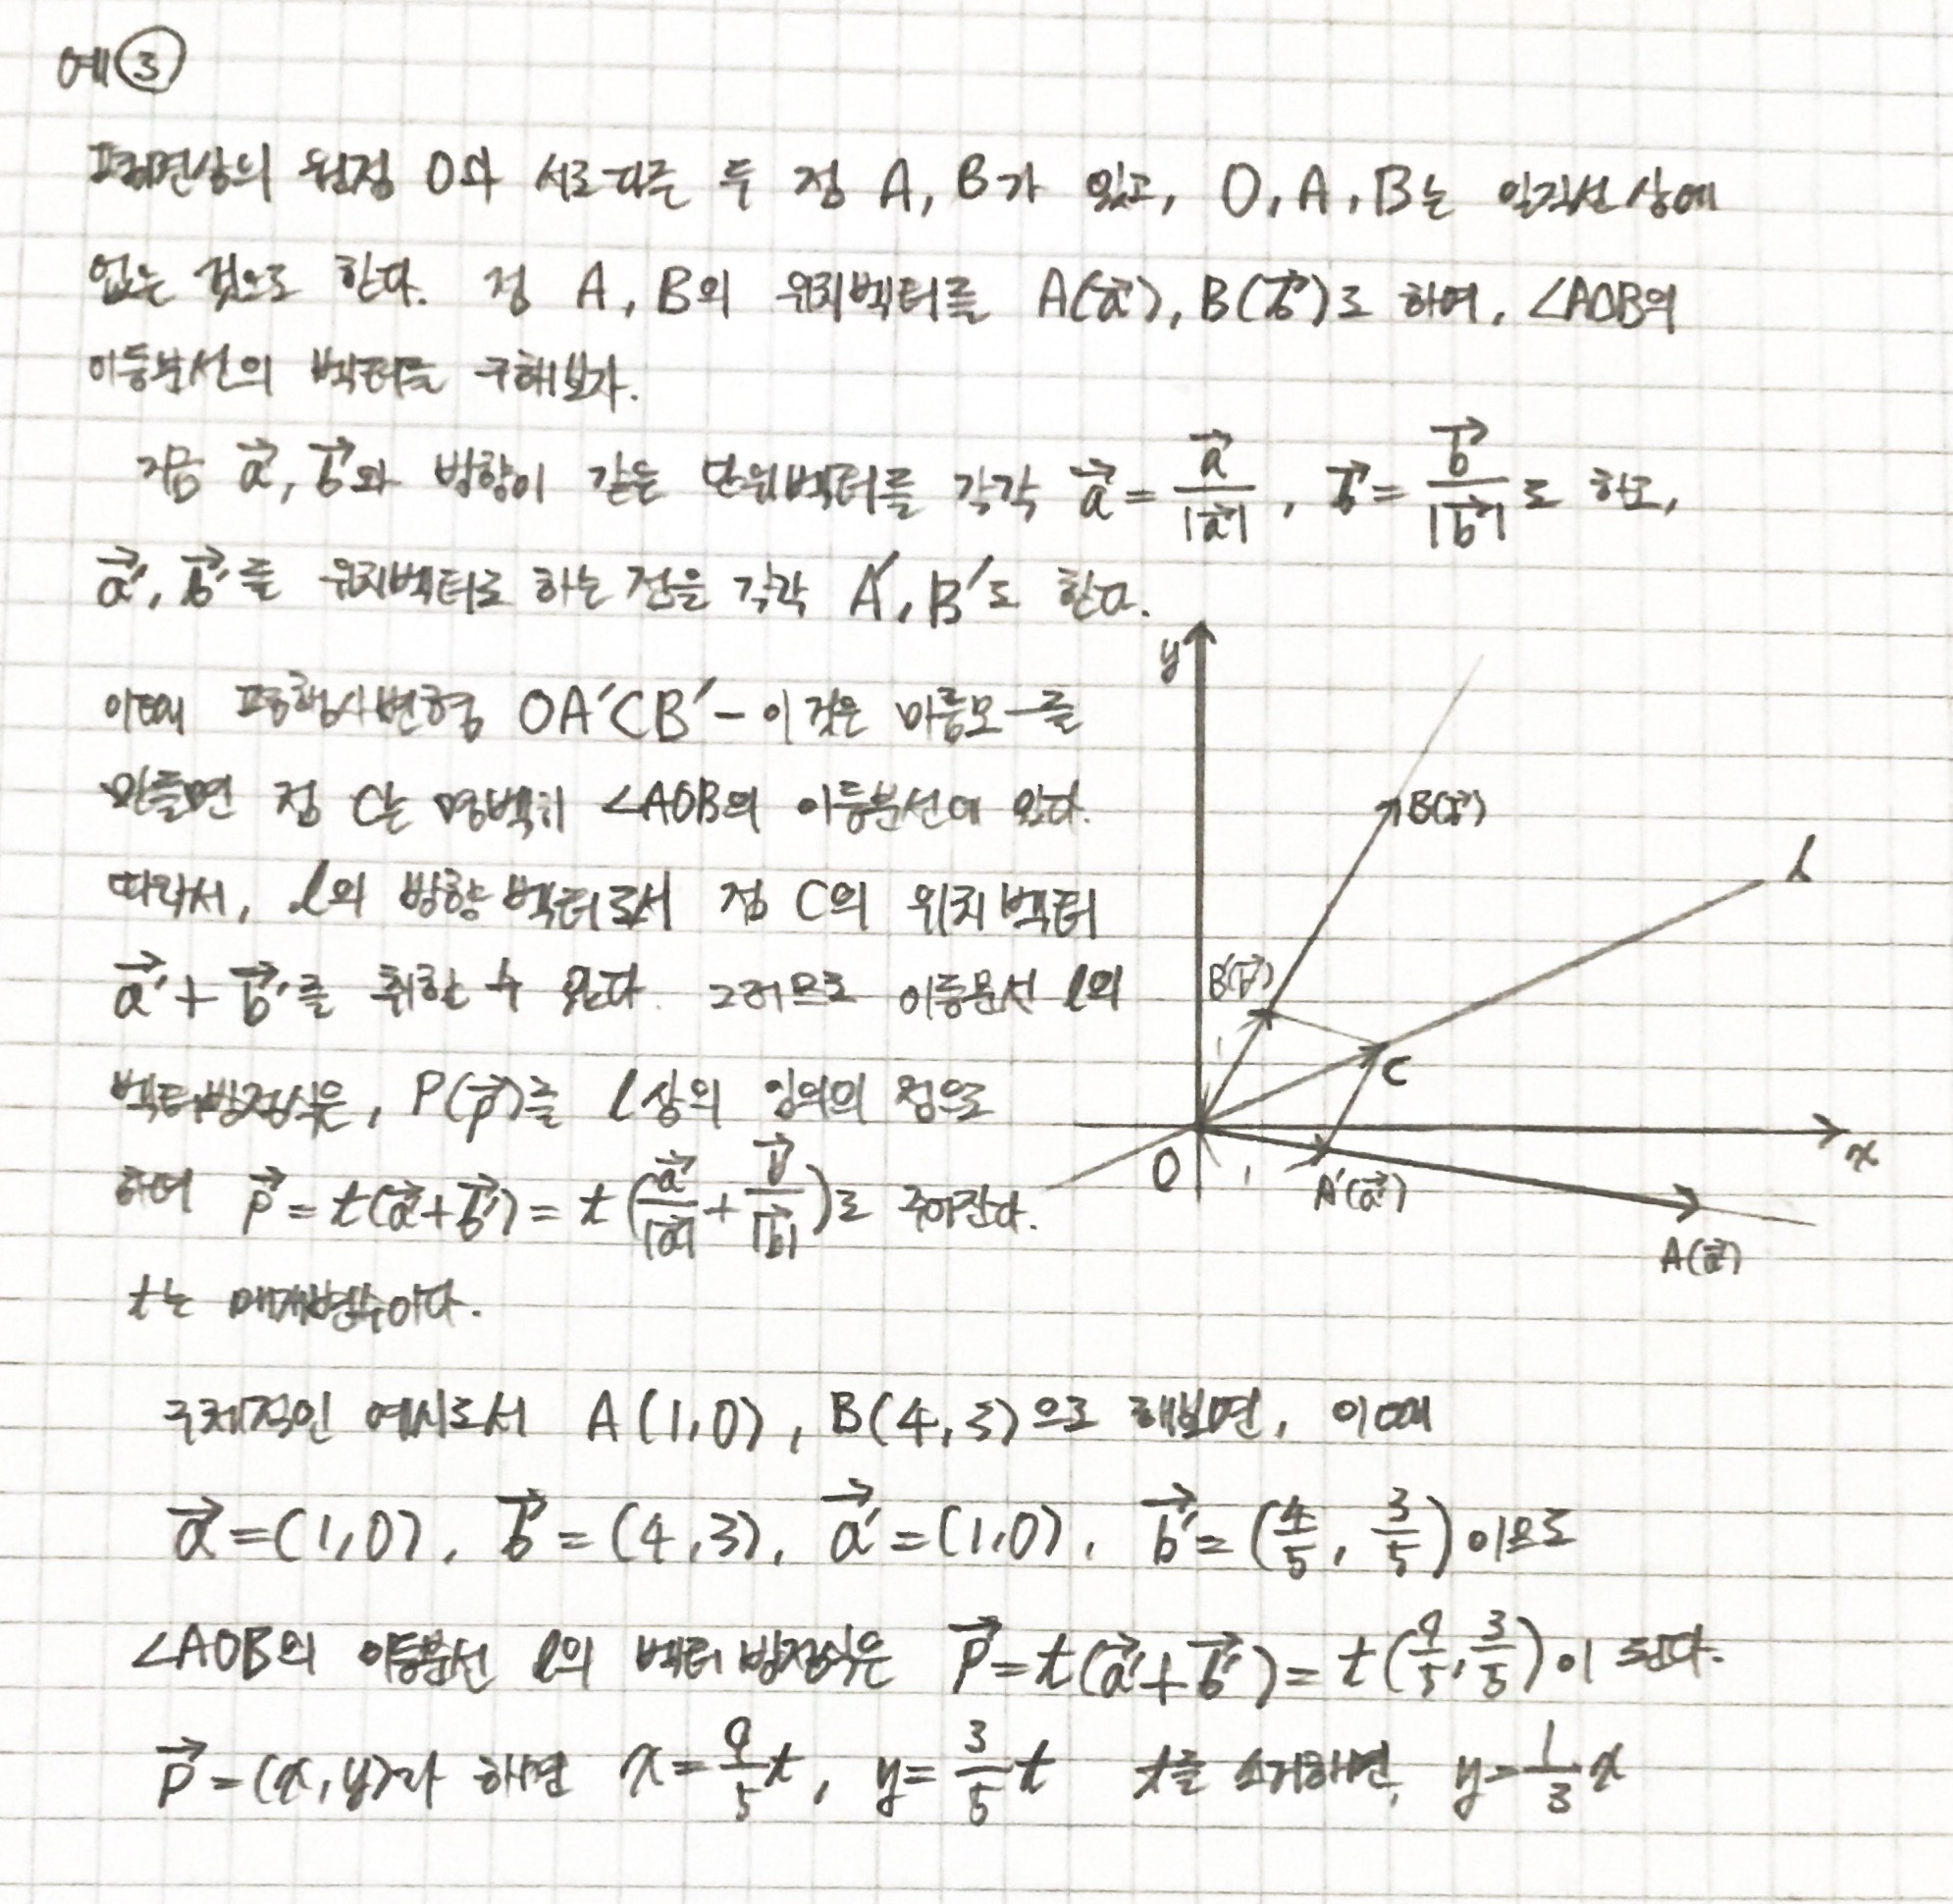 예③
평면상의 원점 O와 서로 다른 두 점 A, B가 있고, O, A, B는 일직선 상에
없는 것으로 한다. 점 A, B의 위치벡터를 A(a⃗), B(b⃗)로 하여, ∠AOB의
이등분선의 벡터를 구해보자.
지금 a⃗, b⃗와 방향이 같은 단위벡터를 각각 a⃗ = a⃗/|a⃗|, b⃗ = b⃗/|b⃗|로 하고,
a⃗′, b⃗′를 위치벡터로 하는 점을 각각 A′, B′로 한다.
이때 평행사변형 OA′CB′ – 이것은 마름모 –를
만들면 점 C는 명백히 ∠AOB의 이등분선에 있다.
따라서, l의 방향 벡터로서 점 C의 위치 벡터
a⃗′ + b⃗′를 취할 수 있다. 그러므로 이등분선 l의
벡터방정식은, P(p⃗)를 l상의 임의의 점으로
하여 p⃗ = t(a⃗′ + b⃗′) = t(a⃗/|a⃗| + b⃗/|b⃗|)로 주어진다.
t는 매개변수이다.
y
B(b⃗)
l
B′(b⃗′)
C
O
1
x
A′(a⃗′)
A(a⃗)
구체적인 예시로서 A(1,0), B(4,3)으로 해보면, 이때
a⃗ = (1,0), b⃗ = (4,3), a⃗′ = (1,0), b⃗′ = (4/5, 3/5)이므로
∠AOB의 이등분선 l의 벡터 방정식은 p⃗ = t(a⃗′ + b⃗′) = t(9/5, 3/5)이 된다.
p⃗ = (x, y)라 하면 x = 9/5 t, y = 3/5 t t를 소거하면, y = 1/3 x